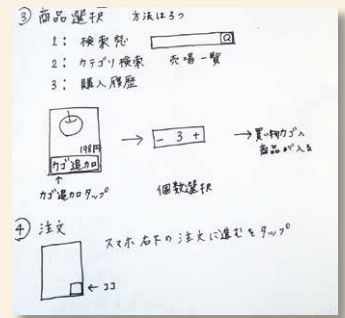 ③ 商品選択 方法は3つ
1: 検索窓
2: カテゴリ検索 売場一覧
3: 購入履歴
198円
カゴ追加
- 3 +
→買い物カゴへ
商品が入る
カゴ追加タップ
個数選択
④ 注文
スマホ右下の注文に進むをタップ
←ココ